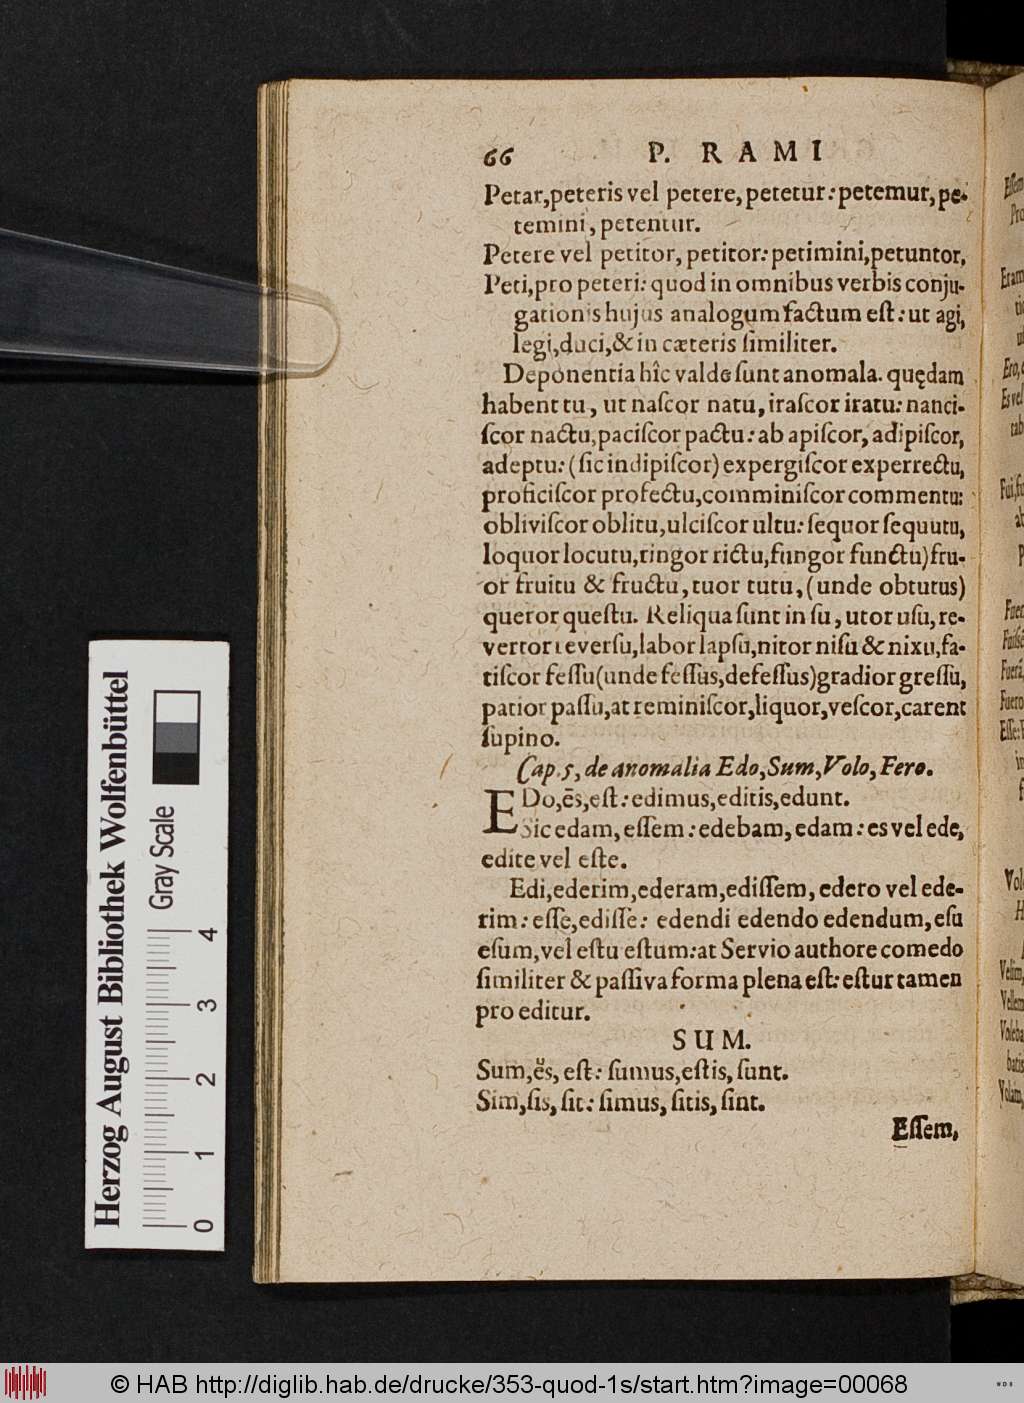 66 P. RAMI
Petar,peteris vel petere, petetur: petemur, pe-
temini, petentur.
Petere vel petitor, petitor: petimini,petuntor,
Peti,pro peteri: quod in omnibus verbis conju-
gationis hujus analogum factum eſt: ut agi,
legi,duci,& in cæteris ſimiliter.
Deponentia hîc valde ſunt anomala. quędam
habent tu, ut naſcor natu, iraſcor iratu: nanci-
ſcor nactu,paciſcor pactu: ab apiſcor, adipiſcor,
adeptu: (ſic indipiſcor) expergiſcor experrectu,
proficiſcor profectu,comminiſcor commentu:
obliviſcor oblitu,ulciſcor ultu: ſequor ſequutu,
loquor locutu,ringor rictu,fungor functu)fru-
or fruitu & fructu, tuor tutu, (unde obtutus)
queror queſtu. Reliqua ſunt in ſu, utor uſu, re-
vertor reverſu,labor lapſu,nitor niſu & nixu,fa-
tiſcor feſſu(unde feſſus,defeſſus)gradior greſſu,
patior paſſu,at reminiſcor,liquor,veſcor,carent
ſupino.
Cap. 5, de anomalia Edo,Sum,Volo,Fero.
EDo,ēs,eſt: edimus,editis,edunt.
Sic edam, eſſem: edebam, edam: es vel ede,
edite vel eſte.
Edi,ederim,ederam,ediſſem, edero vel ede-
rim: eſſe,ediſſe: edendi edendo edendum, eſu
eſum,vel eſtu eſtum:at Servio authore comedo
ſimiliter & paſſiva forma plena eſt: eſtur tamen
pro editur.
SUM.
Sum,ĕs, eſt: ſumus,eſtis, ſunt.
Sim,ſis, ſit: ſimus, ſitis, ſint.
Eſſem,
Herzog August Bibliothek Wolfenbüttel
Gray Scale
0 1 2 3 4
© HAB http://diglib.hab.de/drucke/353-quod-1s/start.htm?image=00068